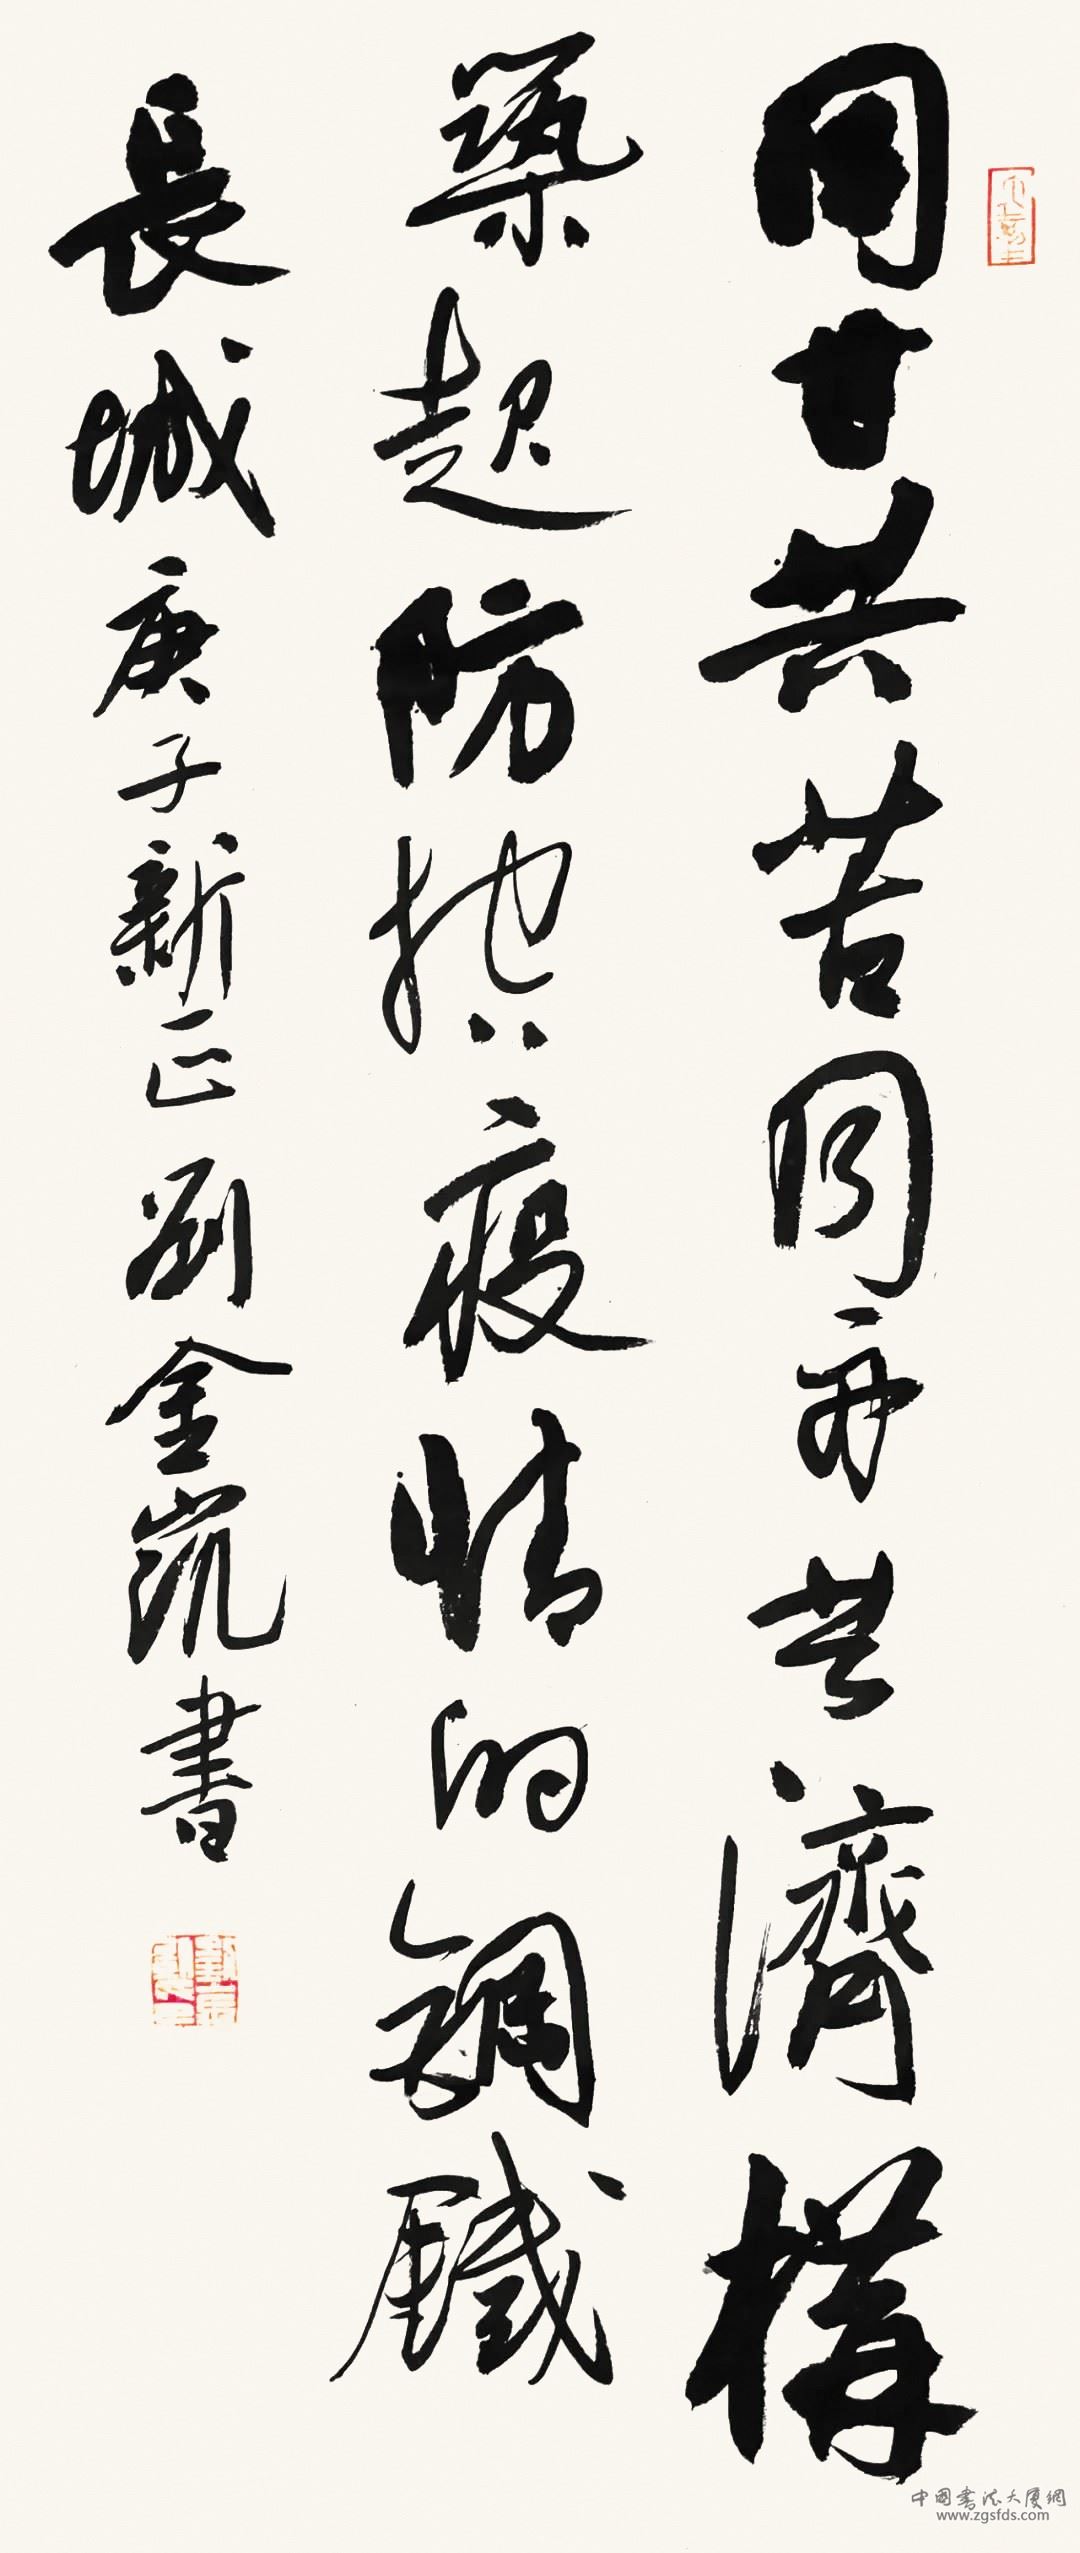 同甘共苦同舟共濟構
築起防控疫情的鋼鐵
長城庚子新正劉金凱書
中国書法大厦網
www.zgsfds.com